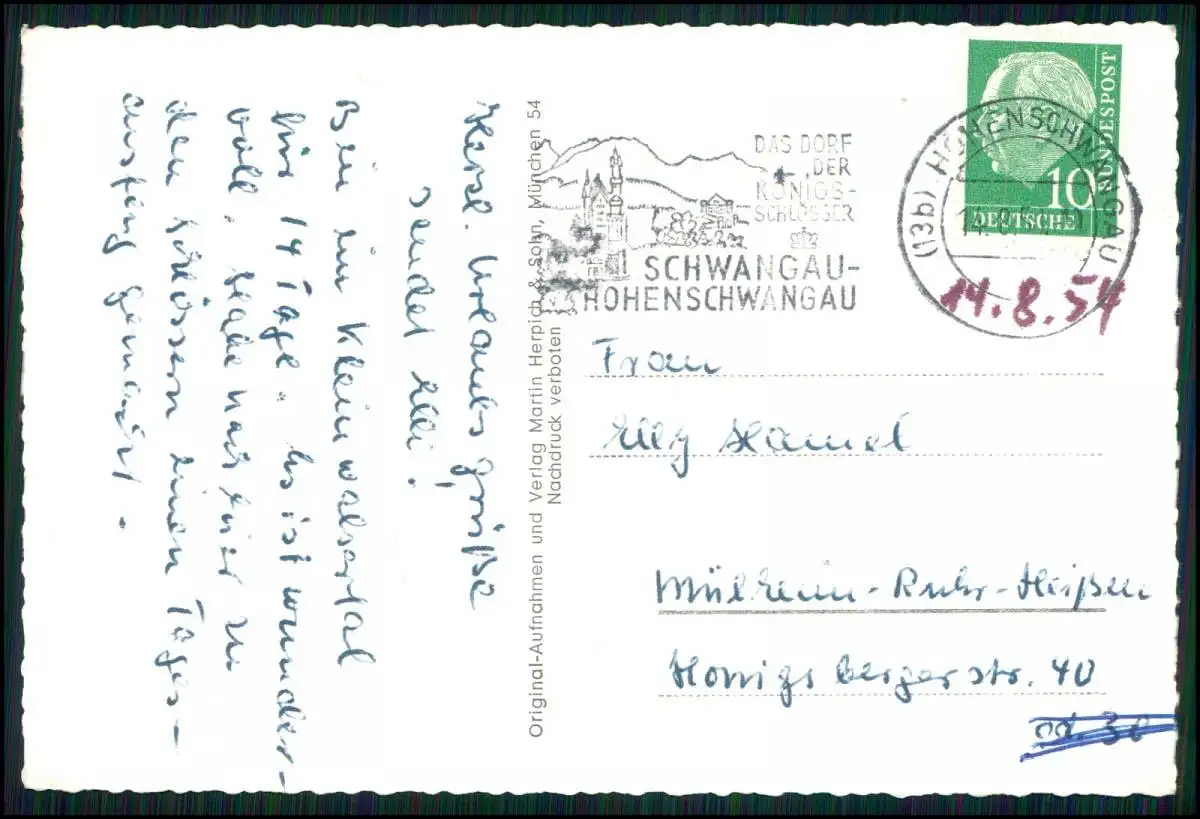 Herzl. Urlaubsgrüße
sendet Elli!
Bin im Kleinwalsertal
für 14 Tage. Es ist wunder-
voll. Habe nach hier zu
den Schlössern einen Tages-
ausflug gemacht.
Original-Aufnahmen und Verlag Martin Herpich & Sohn, München 54
Nachdruck verboten
DAS DORF
DER
KÖNIGS-
SCHLÖSSER
SCHWANGAU-
HOHENSCHWANGAU
(13b) HOHENSCHWANGAU
DEUTSCHE
BUNDESPOST
10
14.8.54
Frau
Elly Hamel
Mülheim-Ruhr-Heißen
Honigsbergerstr. 40